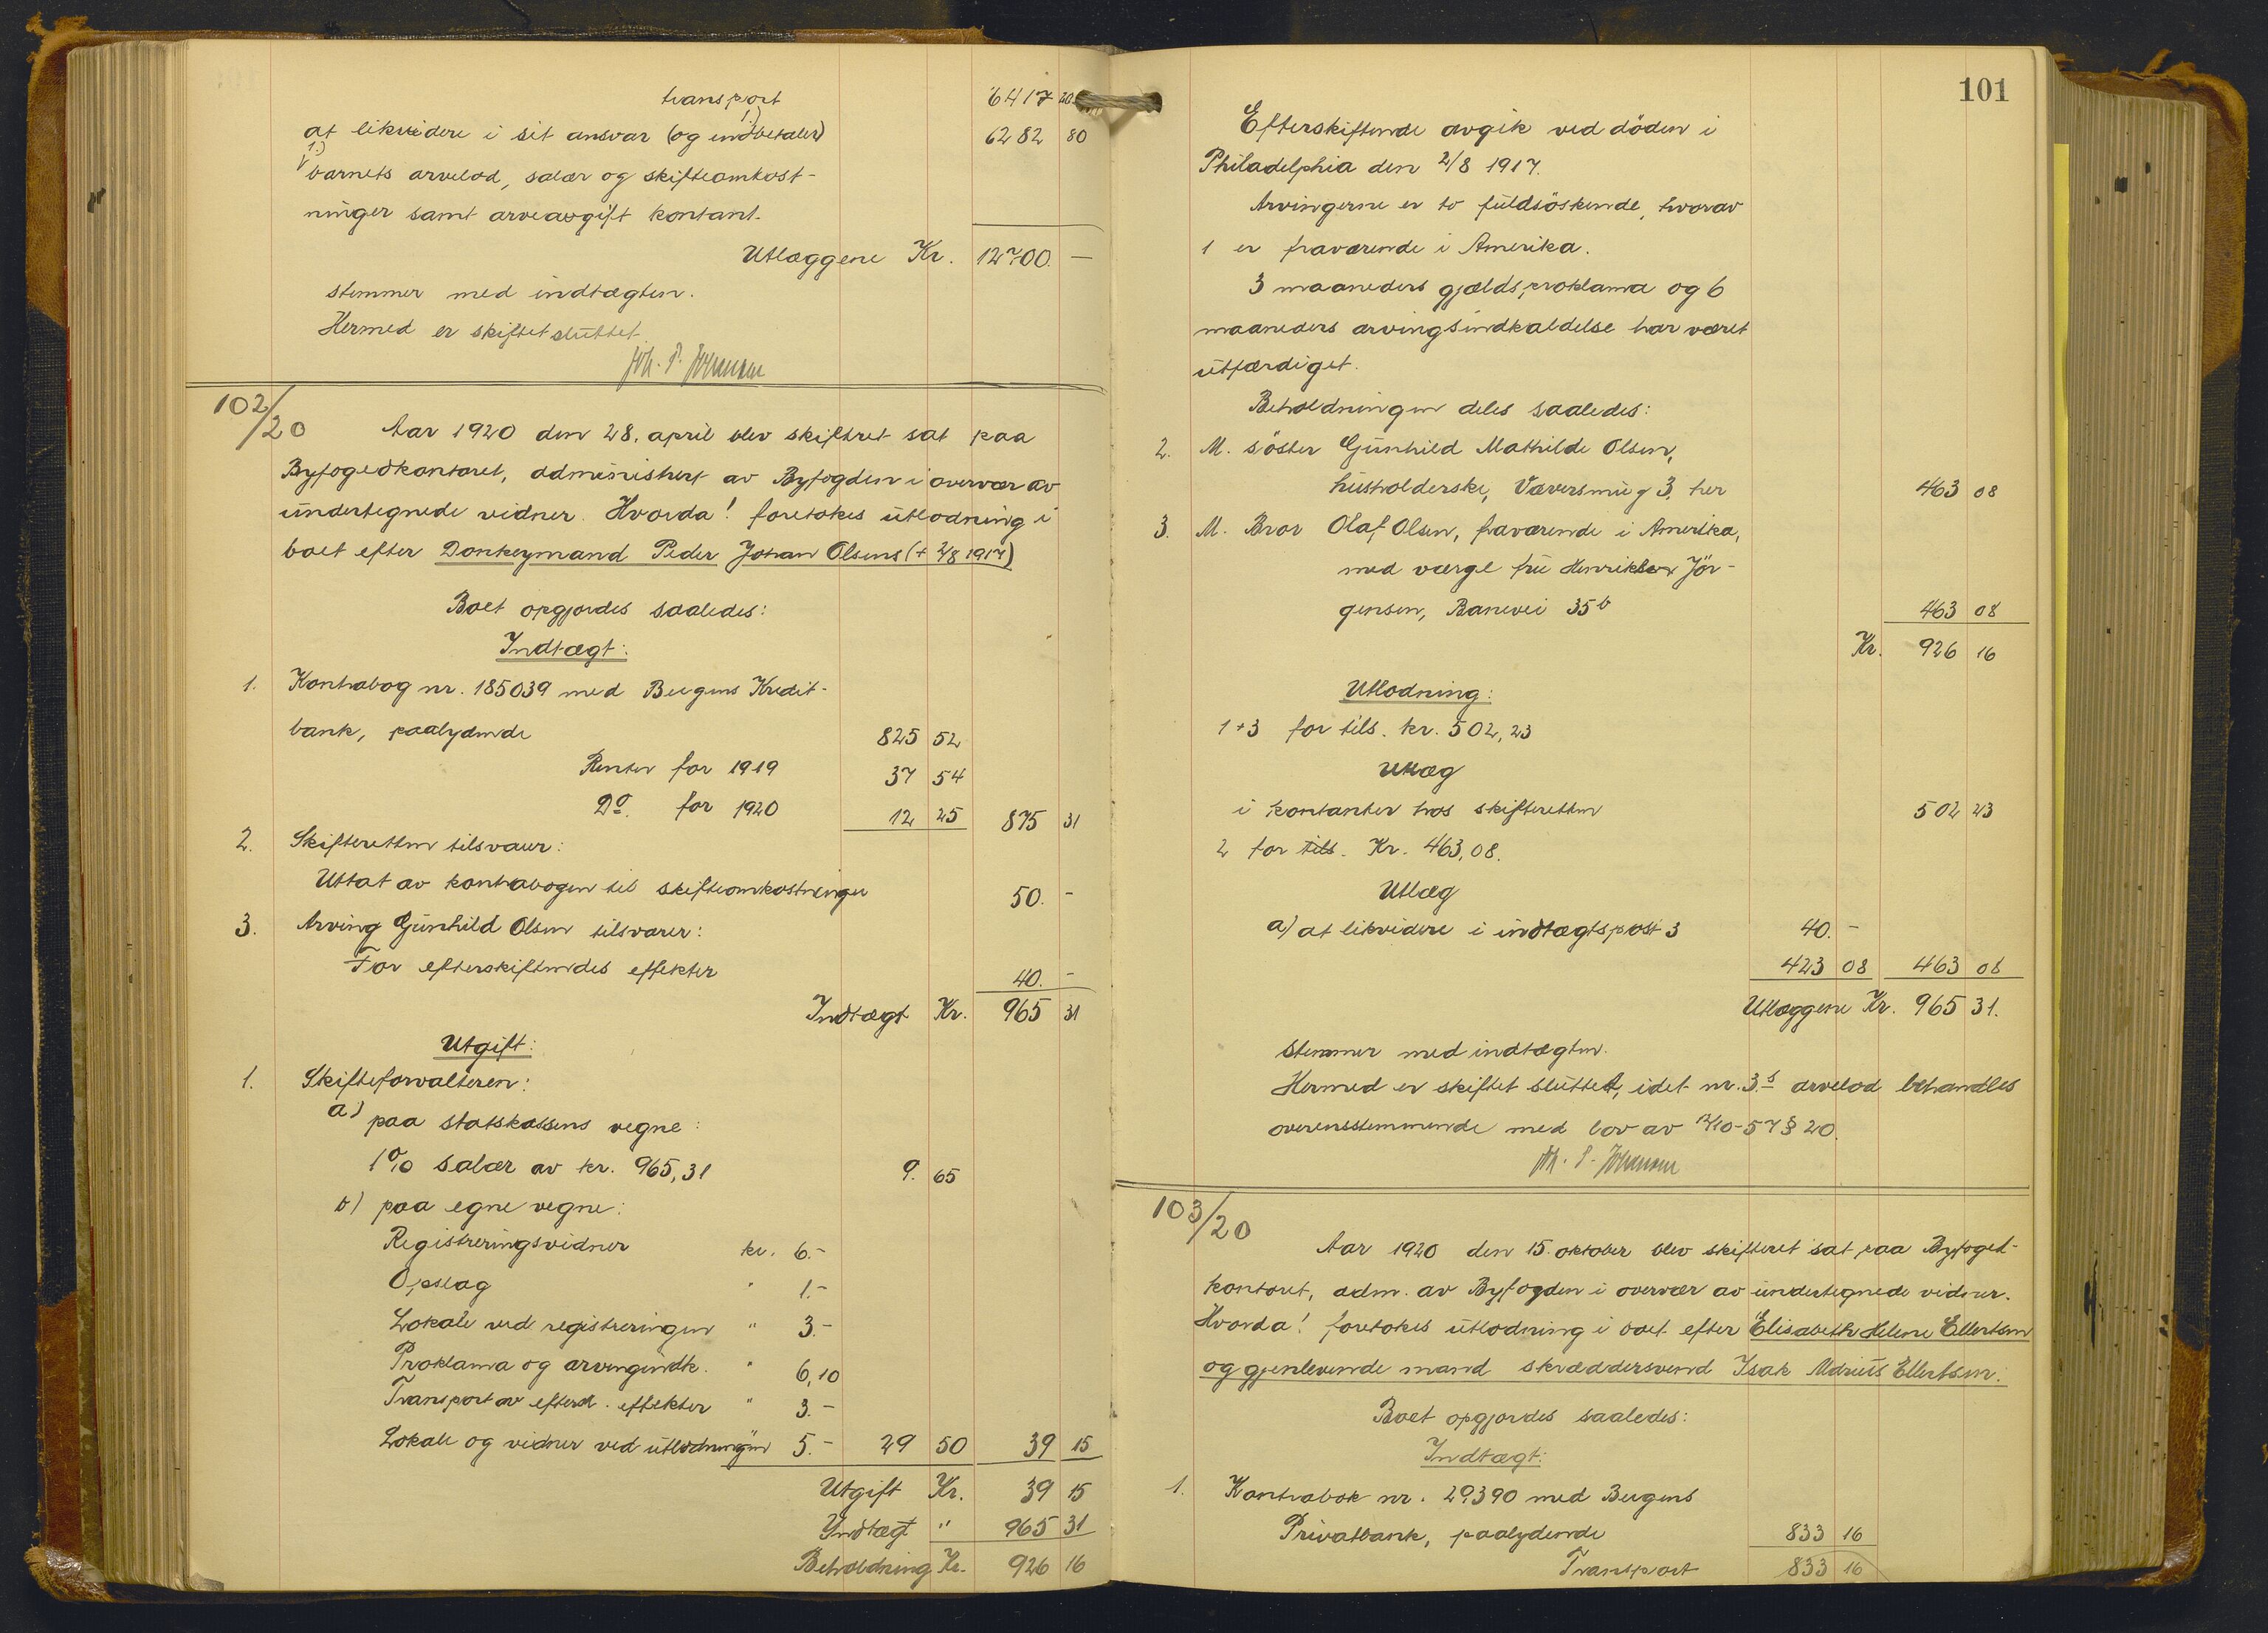 transport 6417 20
at likvidere i sit ansvar (og indbetaler) 1.) 6282 80
1.) barnets arvelod, salær og skifteomkost-
ninger samt arveavgift kontant.
Utlæggene Kr. 12700. —
stemmer med indtægten.
Hermed er skiftet sluttet.
102/20 Aar 1920 den 28. april blev skiftret sat paa
Byfogedkontoret, administrert av Byfogden i overvær av
undertegnede vidner. Hvorda! foretokes utlodning i
boet efter Donkeymand Peder Johan Olsens (+ 2/8 1917)
Boet opgjordes saaledes:
Indtægt:
1. Kontrabog nr. 185039 med Bergens Kredit-
bank, paalydende 825 52
Renter for 1919 37 54
Do. for 1920 12 25 875 31
2. Skifteretten tilsvarer:
Uttat av kontrabogen til skifteomkostninger 50. -
3. Arving Gunhild Olsen tilsvarer:
For efterskiftendes effekter 40. -
Indtægt Kr. 965 31
Utgift:
1. Skifteforvalteren:
a) paa statskassens vegne:
1% salær av kr. 965,31 9. 65
b) paa egne vegne:
Registreringsvidner kr. 6.-
Opslag " 1.-
Lokale ved registreringen " 3.-
Proklama og arvingindk. " 6,10
Transport av efterd. effekter " 3.-
Lokale og vidner ved utlodningen 5.- 29 50 39 15
Utgift Kr. 39 15
Indtægt " 965 31
Beholdning Kr. 926 16
101
Efterskiftende avgik ved döden i
Philadelphia den 2/8 1917.
Arvingerne er to fuldsöskende, hvorav
1 er fraværende i Amerika.
3 maaneders gjældsproklama og 6
maaneders arvingsindkaldelse har været
utfærdiget.
Beholdningen deles saaledes:
2. M. söster Gunhild Mathilde Olsen,
husholderske, Væversmug 3, her 463 08
3. M. Bror Olaf Olsen, fraværende i Amerika,
med værge fru Jör-
gensen, Banevei 35b 463 08
Kr. 926 16
Utlodning:
1+3 for tils. kr. 502,23
Utlæg
i kontanter hos skifteretten 502 23
2 for tils. Kr. 463,08.
Utlæg
a) at likvidere i indtægtspost 3 40. -
423 08 463 08
Utlæggene Kr. 965 31.
stemmer med indtægten.
Hermed er skiftet sluttet, idet nr. 3.s arvelod behandles
overensstemmende med lov av 12/10-57 § 20.
103/20 Aar 1920 den 15. oktober blev skifteret sat paa Byfoged-
kontoret, adm. av Byfogden i overvær av undertegnede vidner.
Hvorda! foretokes utlodning i boet efter Elisabeth Helene Ellertsen
og gjenlevende mand skræddersvend Isak Ellertsen.
Boet opgjordes saaledes:
Indtægt:
1. Kontrabok nr. 29390 med Bergens
Privatbank, paalydende 833 16
Transport 833 16